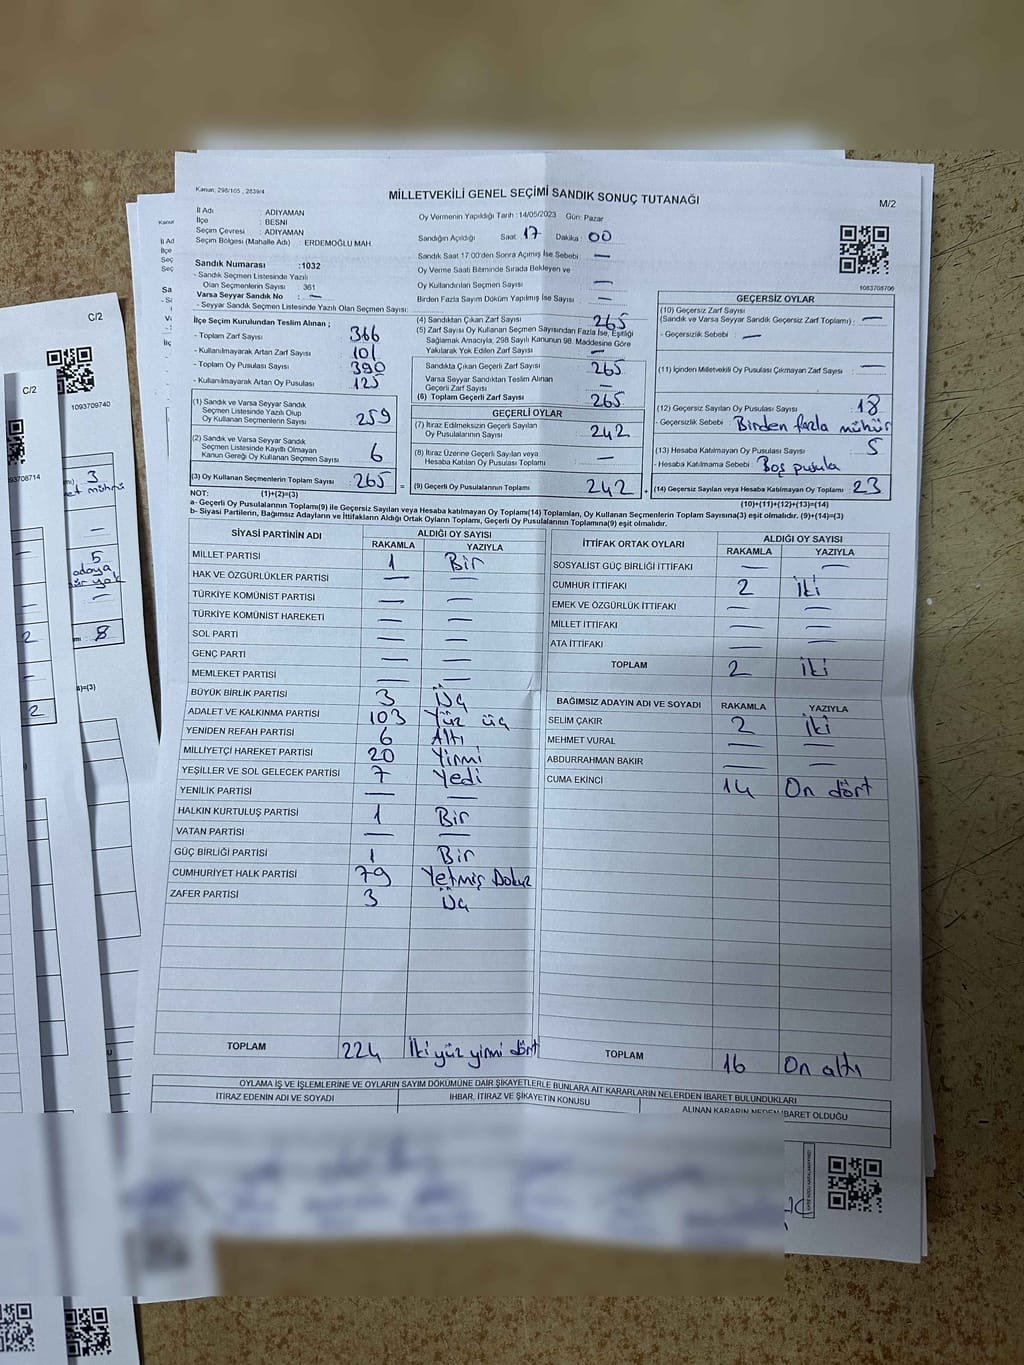 Kanun, 298/105 , 2839/4
MİLLETVEKİLİ GENEL SEÇİMİ SANDIK SONUÇ TUTANAĞI
M/2
İl Adı : ADIYAMAN
İlçe : BESNİ
Seçim Çevresi : ADIYAMAN
Seçim Bölgesi (Mahalle Adı) : ERDEMOĞLU MAH.
Sandık Numarası :1032
- Sandık Seçmen Listesinde Yazılı
Olan Seçmenlerin Sayısı : 361
Varsa Seyyar Sandık No : —
- Seyyar Sandık Seçmen Listesinde Yazılı Olan Seçmen Sayısı:
Oy Vermenin Yapıldığı Tarih :14/05/2023 Gün: Pazar
Sandığın Açıldığı Saat: 17 Dakika: 00
Sandık Saat 17:00'den Sonra Açılmış İse Sebebi —
Oy Verme Saati Bitiminde Sırada Bekleyen ve
Oy Kullandırılan Seçmen Sayısı —
Birden Fazla Sayım Döküm Yapılmış İse Sayısı : —
1083708706
İlçe Seçim Kurulundan Teslim Alınan ;
- Toplam Zarf Sayısı 366
- Kullanılmayarak Artan Zarf Sayısı 101
- Toplam Oy Pusulası Sayısı 390
- Kullanılmayarak Artan Oy Pusulası 125
(1) Sandık ve Varsa Seyyar Sandık
Seçmen Listesinde Yazılı Olup
Oy Kullanan Seçmenlerin Sayısı 259
(2) Sandık ve Varsa Seyyar Sandık
Seçmen Listesinde Kayıtlı Olmayan
Kanun Gereği Oy Kullanan Seçmen Sayısı 6
(3) Oy Kullanan Seçmenlerin Toplam Sayısı 265
(4) Sandıktan Çıkan Zarf Sayısı 265
(5) Zarf Sayısı Oy Kullanan Seçmen Sayısından Fazla İse, Eşitliği
Sağlamak Amacıyla, 298 Sayılı Kanunun 98. Maddesine Göre
Yakılarak Yok Edilen Zarf Sayısı —
Sandıkta Çıkan Geçerli Zarf Sayısı 265
Varsa Seyyar Sandıktan Teslim Alınan
Geçerli Zarf Sayısı —
(6) Toplam Geçerli Zarf Sayısı 265
GEÇERLİ OYLAR
(7) İtiraz Edilmeksizin Geçerli Sayılan
Oy Pusulalarının Sayısı 242
(8) İtiraz Üzerine Geçerli Sayılan veya
Hesaba Katılan Oy Pusulası Toplamı —
= (9) Geçerli Oy Pusulalarının Toplamı 242 +
GEÇERSİZ OYLAR
(10) Geçersiz Zarf Sayısı
(Sandık ve Varsa Seyyar Sandık Geçersiz Zarf Toplamı) : —
- Geçersizlik Sebebi : —
(11) İçinden Milletvekili Oy Pusulası Çıkmayan Zarf Sayısı —
(12) Geçersiz Sayılan Oy Pusulası Sayısı 18
- Geçersizlik Sebebi : Birden fazla mühür
(13) Hesaba Katılmayan Oy Pusulası Sayısı 5
- Hesaba Katılmama Sebebi : Boş pusula
(14) Geçersiz Sayılan veya Hesaba Katılmayan Oy Toplamı 23
NOT: (1)+(2)=(3)
(10)+(11)+(12)+(13)=(14)
a- Geçerli Oy Pusulalarının Toplamı(9) ile Geçersiz Sayılan veya Hesaba katılmayan Oy Toplamı(14) Toplamları, Oy Kullanan Seçmenlerin Toplam Sayısına(3) eşit olmalıdır. (9)+(14)=(3)
b- Siyasi Partilerin, Bağımsız Adayların ve İttifakların Aldığı Ortak Oyların Toplamı, Geçerli Oy Pusulalarının Toplamına(9) eşit olmalıdır.
SİYASİ PARTİNİN ADI ALDIĞI OY SAYISI
RAKAMLA YAZIYLA
MİLLET PARTİSİ 1 Bir
HAK VE ÖZGÜRLÜKLER PARTİSİ — —
TÜRKİYE KOMÜNİST PARTİSİ — —
TÜRKİYE KOMÜNİST HAREKETİ — —
SOL PARTİ — —
GENÇ PARTİ — —
MEMLEKET PARTİSİ — —
BÜYÜK BİRLİK PARTİSİ 3 Üç
ADALET VE KALKINMA PARTİSİ 103 Yüz üç
YENİDEN REFAH PARTİSİ 6 Altı
MİLLİYETÇİ HAREKET PARTİSİ 20 Yirmi
YEŞİLLER VE SOL GELECEK PARTİSİ 7 Yedi
YENİLİK PARTİSİ — —
HALKIN KURTULUŞ PARTİSİ 1 Bir
VATAN PARTİSİ — —
GÜÇ BİRLİĞİ PARTİSİ 1 Bir
CUMHURİYET HALK PARTİSİ 79 Yetmiş Dokuz
ZAFER PARTİSİ 3 Üç
TOPLAM 224 İki yüz yirmi dört
İTTİFAK ORTAK OYLARI ALDIĞI OY SAYISI
RAKAMLA YAZIYLA
SOSYALİST GÜÇ BİRLİĞİ İTTİFAKI — —
CUMHUR İTTİFAKI 2 İki
EMEK VE ÖZGÜRLÜK İTTİFAKI — —
MİLLET İTTİFAKI — —
ATA İTTİFAKI — —
TOPLAM 2 İki
BAĞIMSIZ ADAYIN ADI VE SOYADI RAKAMLA YAZIYLA
SELİM ÇAKIR 2 İki
MEHMET VURAL — —
ABDURRAHMAN BAKIR — —
CUMA EKİNCİ 14 On dört
TOPLAM 16 On altı
OYLAMA İŞ VE İŞLEMLERİNE VE OYLARIN SAYIM DÖKÜMÜNE DAİR ŞİKAYETLERLE BUNLARA AİT KARARLARIN NELERDEN İBARET BULUNDUKLARI
İTİRAZ EDENİN ADI VE SOYADI
İHBAR, İTİRAZ VE ŞİKAYETİN KONUSU
ALINAN KARARIN NEDEN İBARET OLDUĞU
C/2
1093709740
3
—
5
adaya
—
8
C/2
93708714
—
2
—
2